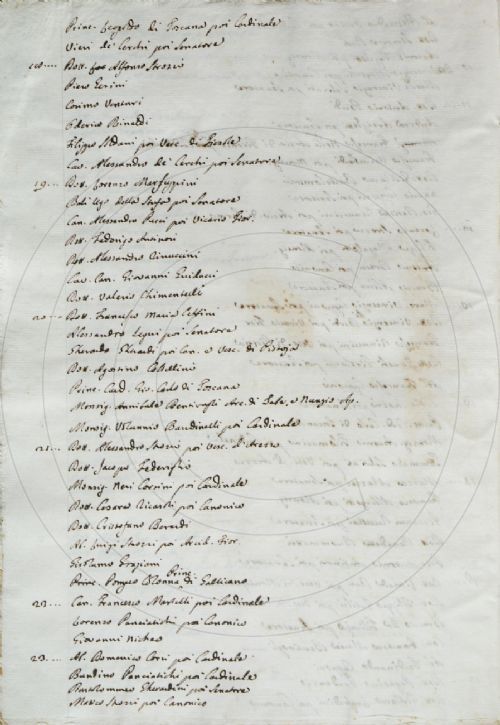 Princ. Leopoldo di Toscana poi Cardinale
Vieri de Cerchi poi Senatore
18.... Dott. Alfonso Strozzi
Piero
Cosimo Venturi
Federico Rinaldi
Filippo Aldani poi Vesc. di Fiesole
Cav. Alessandro de Cerchi poi Senatore
19... Dott. Lorenzo Marsuppini
Bali Ugo della Stufa poi Senatore
Can. Alessandro Pucci poi Vicario Fior.
Dott. Federigo
Dott. Alessandro Cinuccini
Cav. Can. Giovanni Guiducci
Dott. Valerio Chimentelli
20... Dott. Francesco Maria Ceffini
Alessandro Segni poi Senatore
Gherardo Gherardi poi Can. e Vesc. di Pistoja
Dott. Agostino Coltellini
Princ. Card. Gio. Carlo di Toscana
Monsig. Annibale Bentivogli Arc. di Tebe, e Nunzio Ap.
Monsig. Volunnio Bandinelli poi Cardinale
21... Dott. Alessandro Strozzi poi Vesc. d'Arezzo
Dott. Jacopo Federighi
Monsig. Neri Corsini poi Cardinale
Dott. Cesare Ricasoli poi Canonico
Dott. Cristofano Berardi
Al. Luigi Strozzi poi Arcid. Fior.
Girolamo Graziani
Princ. Pompeo Colonna Princ. di Gallicano
22... Can. Francesco Martelli poi Cardinale
Lorenzo Panciatichi poi Canonico
Giovanni
23... Al. Domenico Corsi poi Cardinale
Bandino Panciatichi poi Cardinale
Bartolommeo Gherardini poi Senatore
Marco Strozzi poi Canonico